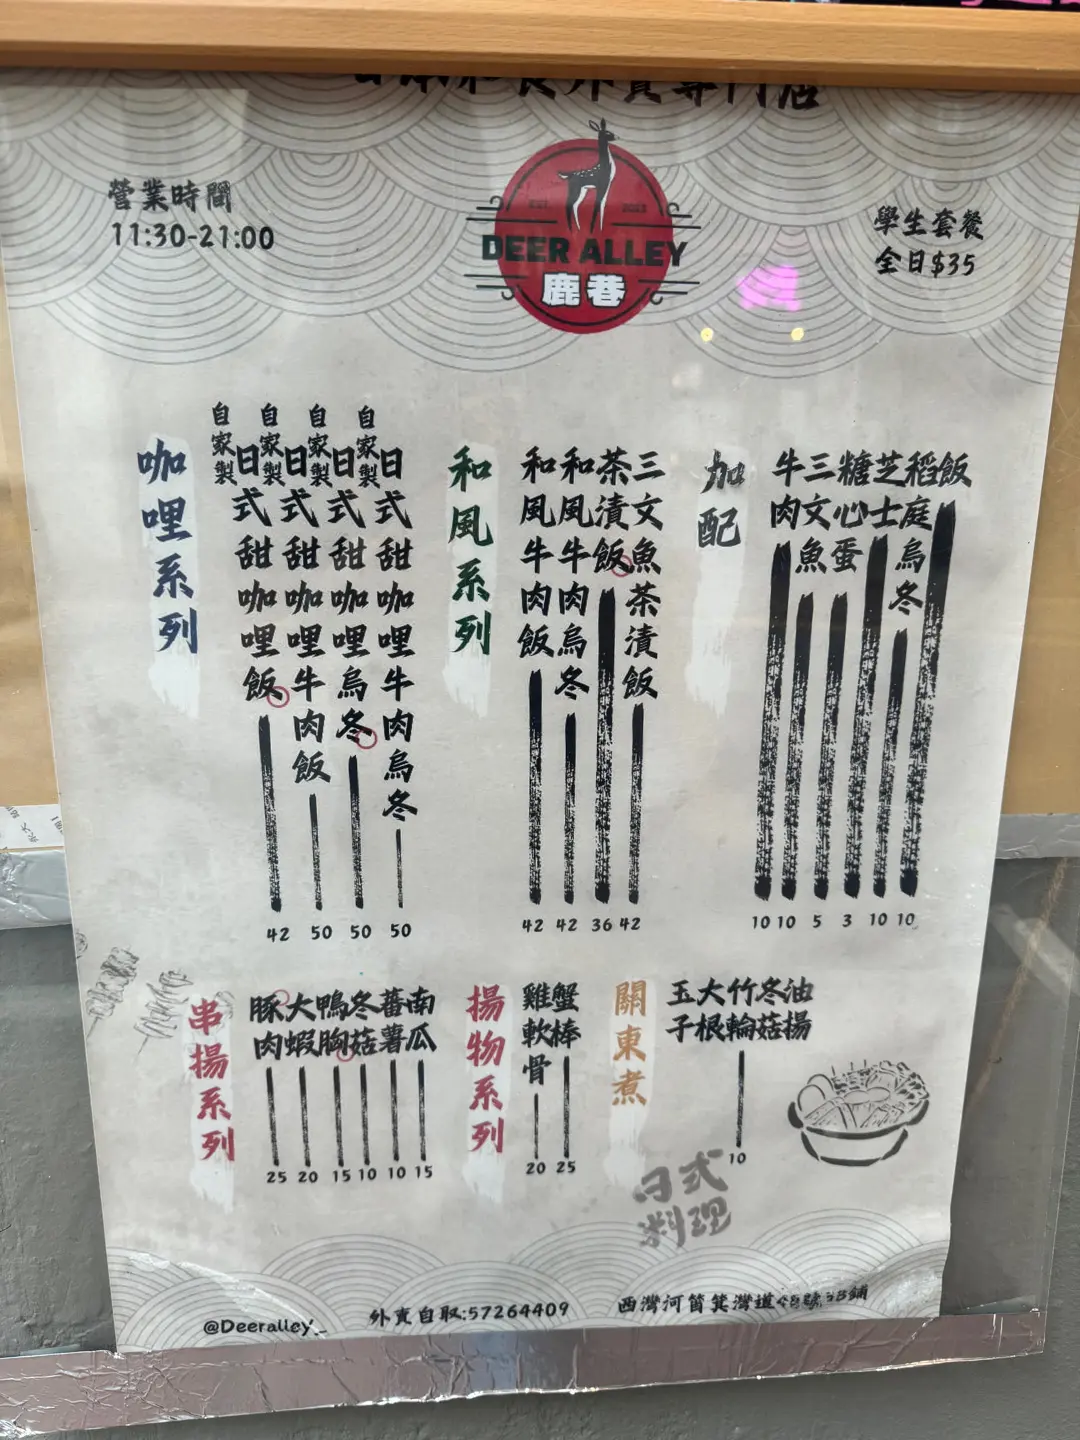 日本和食外賣專門店
營業時間
11:30-21:00
EST.
DEER ALLEY
鹿巷
學生套餐
全日$35
咖哩系列
自家製日式甜咖哩飯 42
自家製日式甜咖哩牛肉飯 50
自家製日式甜咖哩烏冬 50
自家製日式甜咖哩牛肉烏冬 50
和風系列
和風牛肉飯 42
和風牛肉烏冬 42
茶漬飯 36
三文魚茶漬飯 42
加配
牛肉 10
三文魚 10
糖心蛋 5
芝士 3
稻庭烏冬 10
飯 10
串揚系列
豚肉 25
大蝦 20
鴨胸 15
冬菇 10
蕃薯 10
南瓜 15
揚物系列
雞軟骨 20
蟹棒 25
關東煮
玉子
大根
竹輪
冬菇
油揚
10
日式
料理
@Deeralley_
外賣自取:57264409
西灣河筲箕灣道48號3B鋪